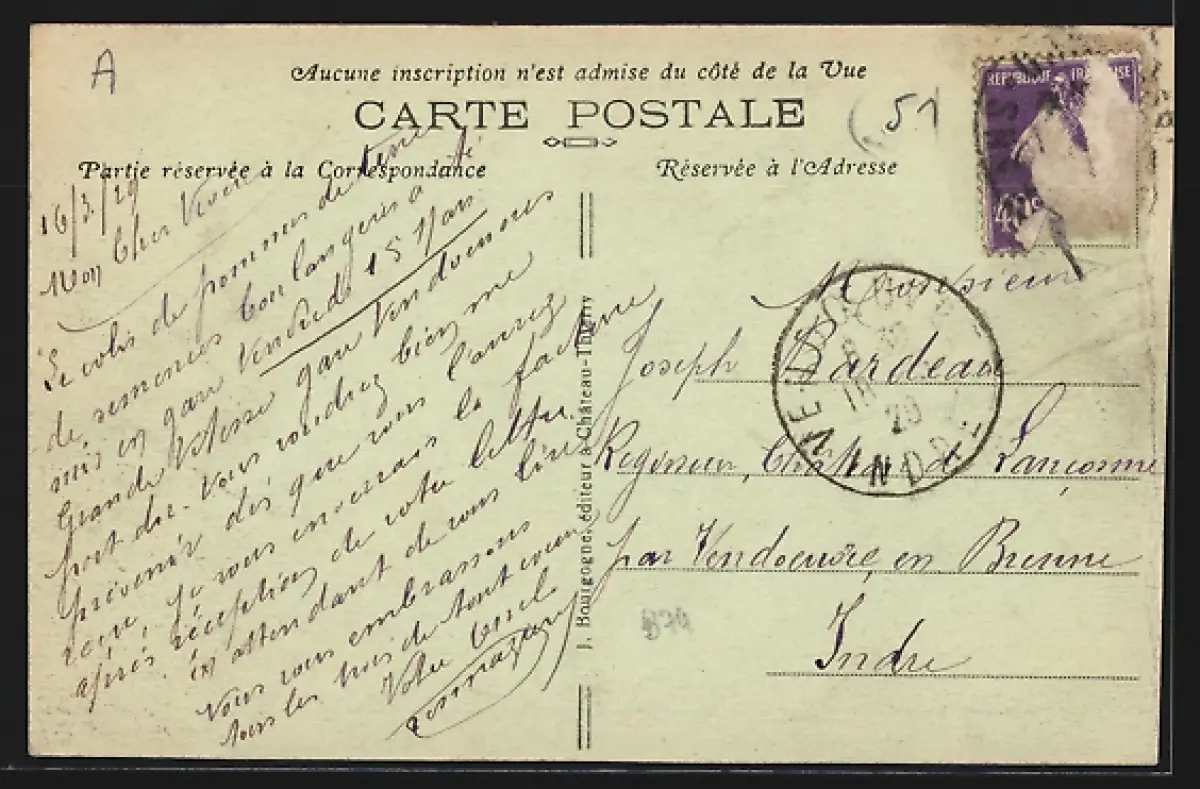 A
Aucune inscription n'est admise du côté de la Vue
CARTE POSTALE
51
Partie réservée à la Correspondance
Réservée à l'Adresse
REPUBLIQUE FRANÇAISE
16/3/29
Mon Cher
Le colis de pommes de terre
de semences boulangeres a été
mis en gare Vendredi 15 Mars
Grande Vitesse gare Vendoeuvres
port du. Vous voudrez bien me
prévenir dès que vous l'aurez
reçu, Je vous enverrais la facture
après réception de votre lettre.
En attendant de vous lire
Nous vous embrassons
tous les trois de tout coeur
Votre oncle
J. Bourgogne, éditeur à Château-Thierry
Monsieur
Joseph Bardeau
Regisseur, Château de Lancosme
par Vendoeuvre, en Brenne
Indre
B74